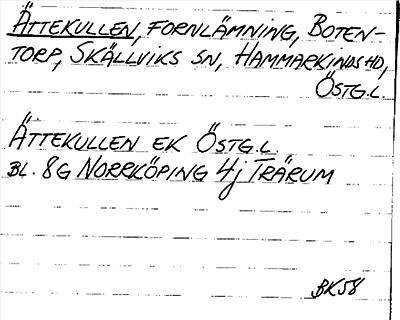 ÄTTEKULLEN, FORNLÄMNING, BOTEN-
TORP, SKÄLLVIKS SN, HAMMARKINDS HD,
ÖSTG.L.
ÄTTEKULLEN EK ÖSTG.L.
BL. 8G NORRKÖPING 4j TRÄRUM
BK58